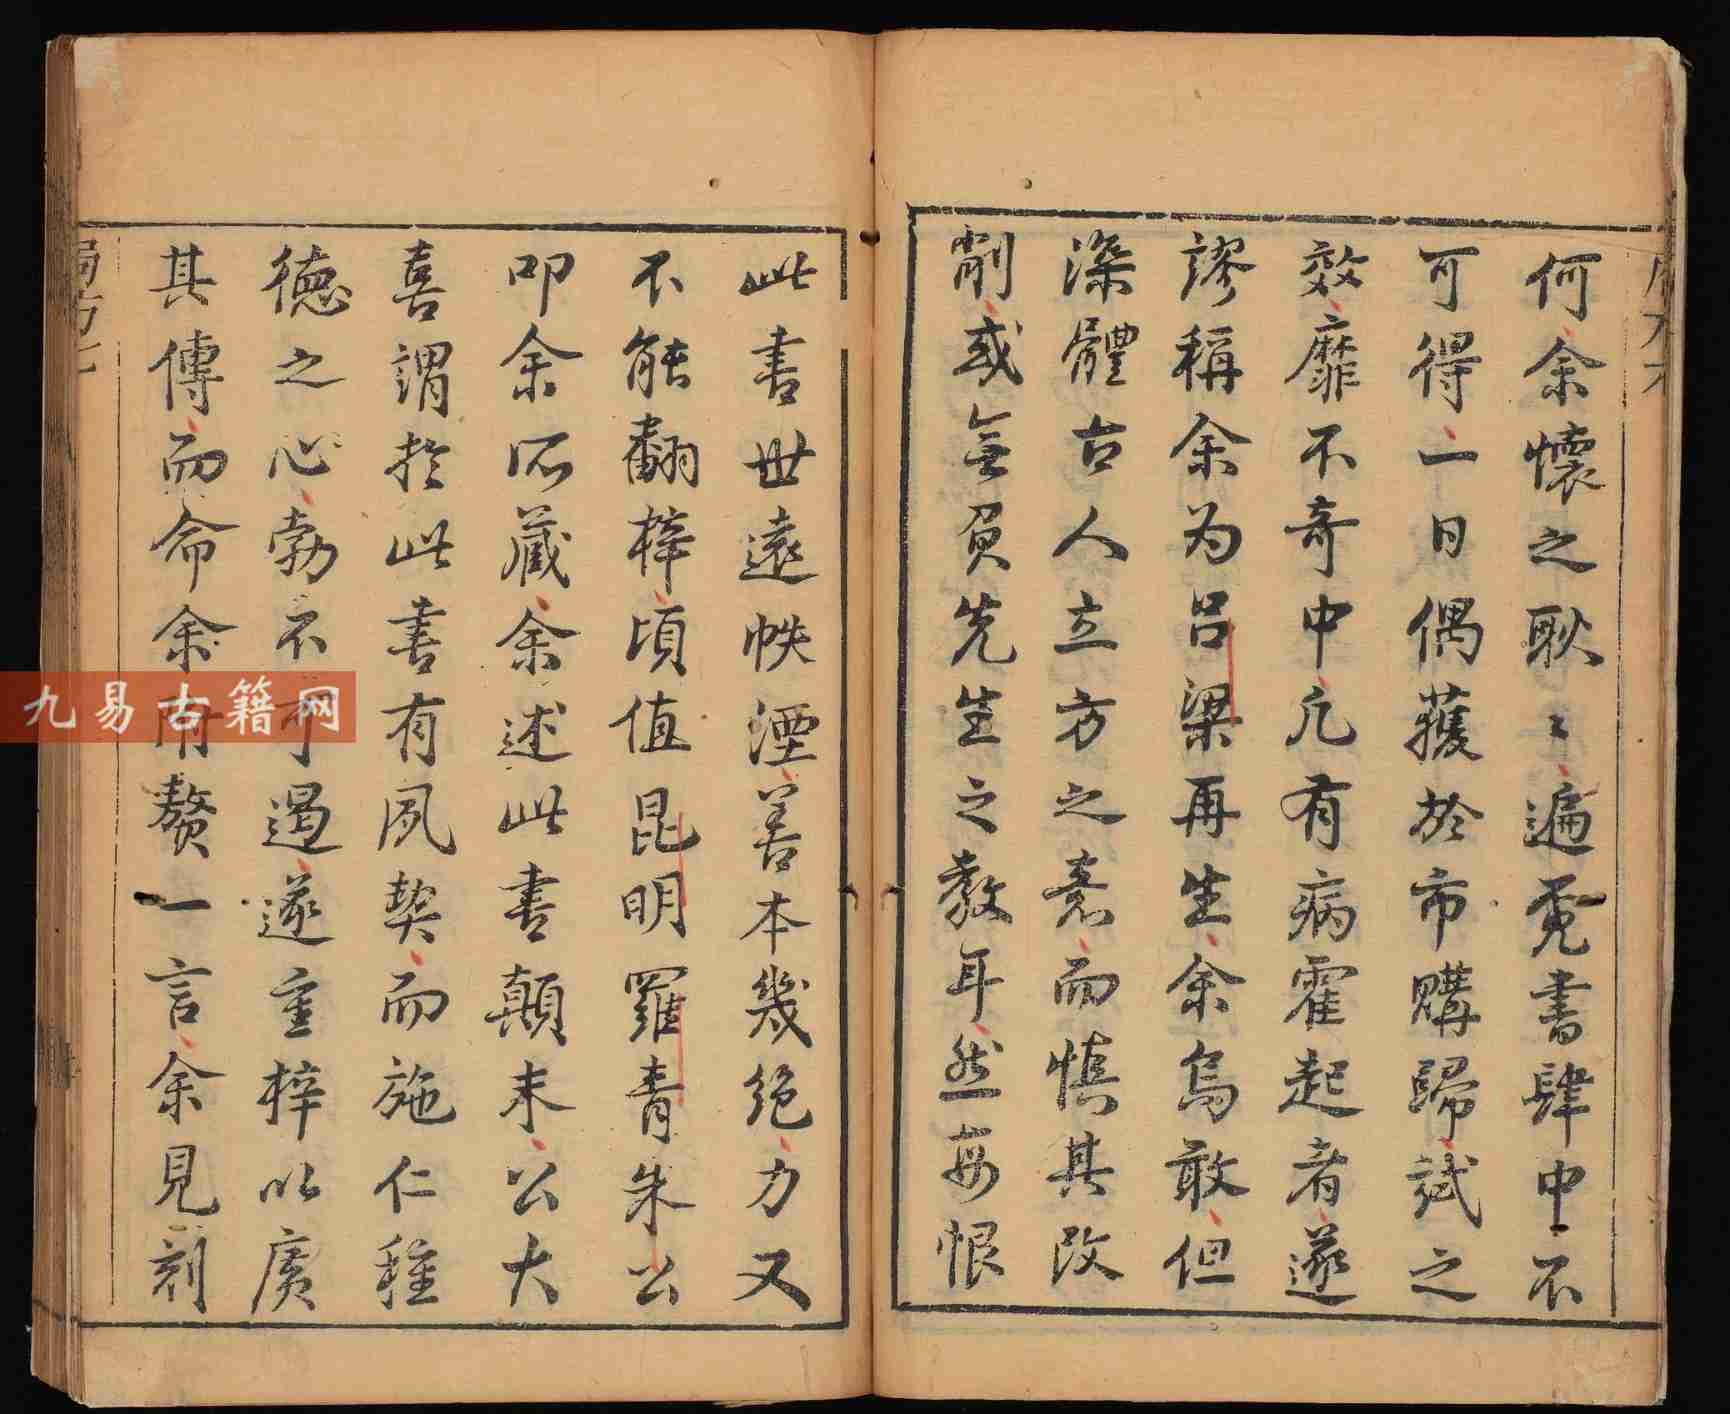 何余懷之耿〻遍覓書肆中不
可得一日偶獲於市購歸試之
效靡不奇中凢有病霍起者遂
謬稱余为吕梁再生余烏敢但
深體古人立方之意而慎其改
削或無負先生之教耳然每恨
此書世遠帙湮善本幾絶力又
不能翻梓頃值昆明羅青朱公
叩余所藏余述此書顛末公大
喜謂於此書有夙契而施仁種
德之心勃不可遏遂重梓以廣
其傳而命余附贅一言余見刻
九易古籍网